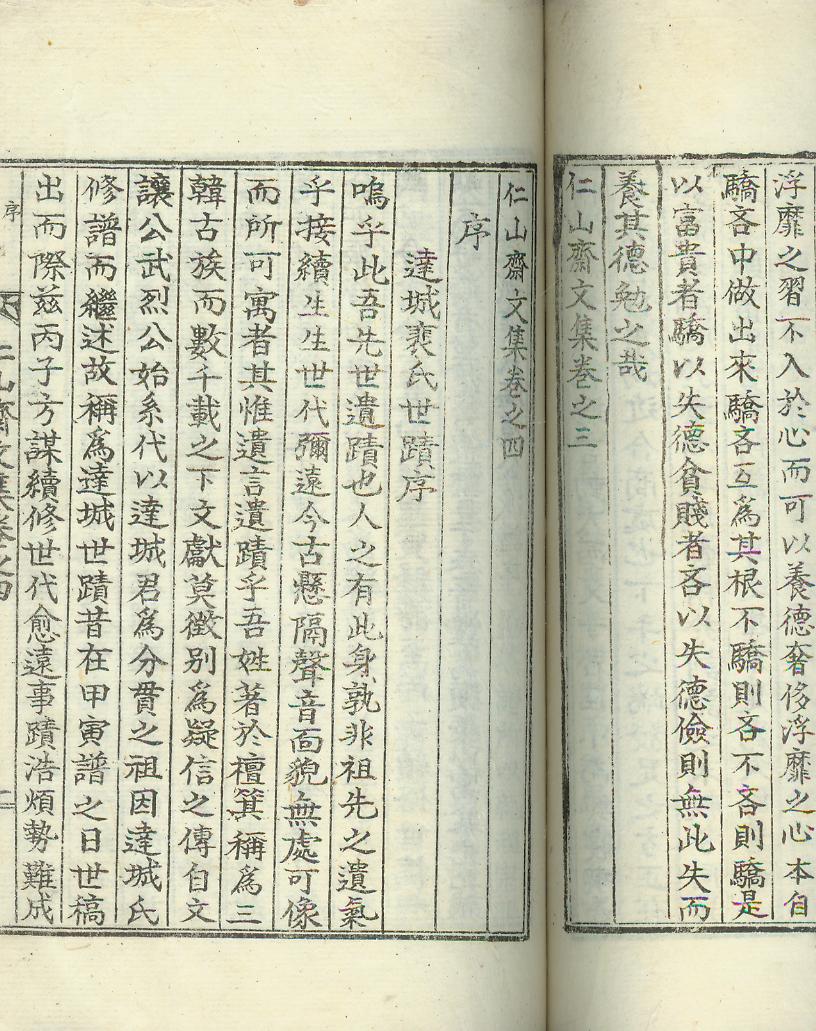 浮靡之習不入於心而可以養德奢侈浮靡之心本自
驕吝中做出來驕吝互爲其根不驕則吝不吝則驕是
以富貴者驕以失德貧賤者吝以失德儉則無此失而
養其德勉之哉
仁山齋文集卷之三
仁山齋文集卷之四
序
達城裵氏世蹟序
嗚乎此吾先世遺蹟也人之有此身孰非祖先之遺氣
乎接續生生世代彌遠今古懸隔聲音面貌無處可像
而所可寓者其惟遺言遺蹟乎吾姓著於檀箕稱爲三
韓古族而數千載之下文獻莫徵別爲疑信之傳自文
讓公武烈公始系代以達城君爲分貫之祖因達城氏
修譜而繼述故稱爲達城世蹟昔在甲寅譜之日世稿
出而際玆丙子方謀續修世代愈遠事蹟浩煩勢難成
序
仁山齋文集卷之四